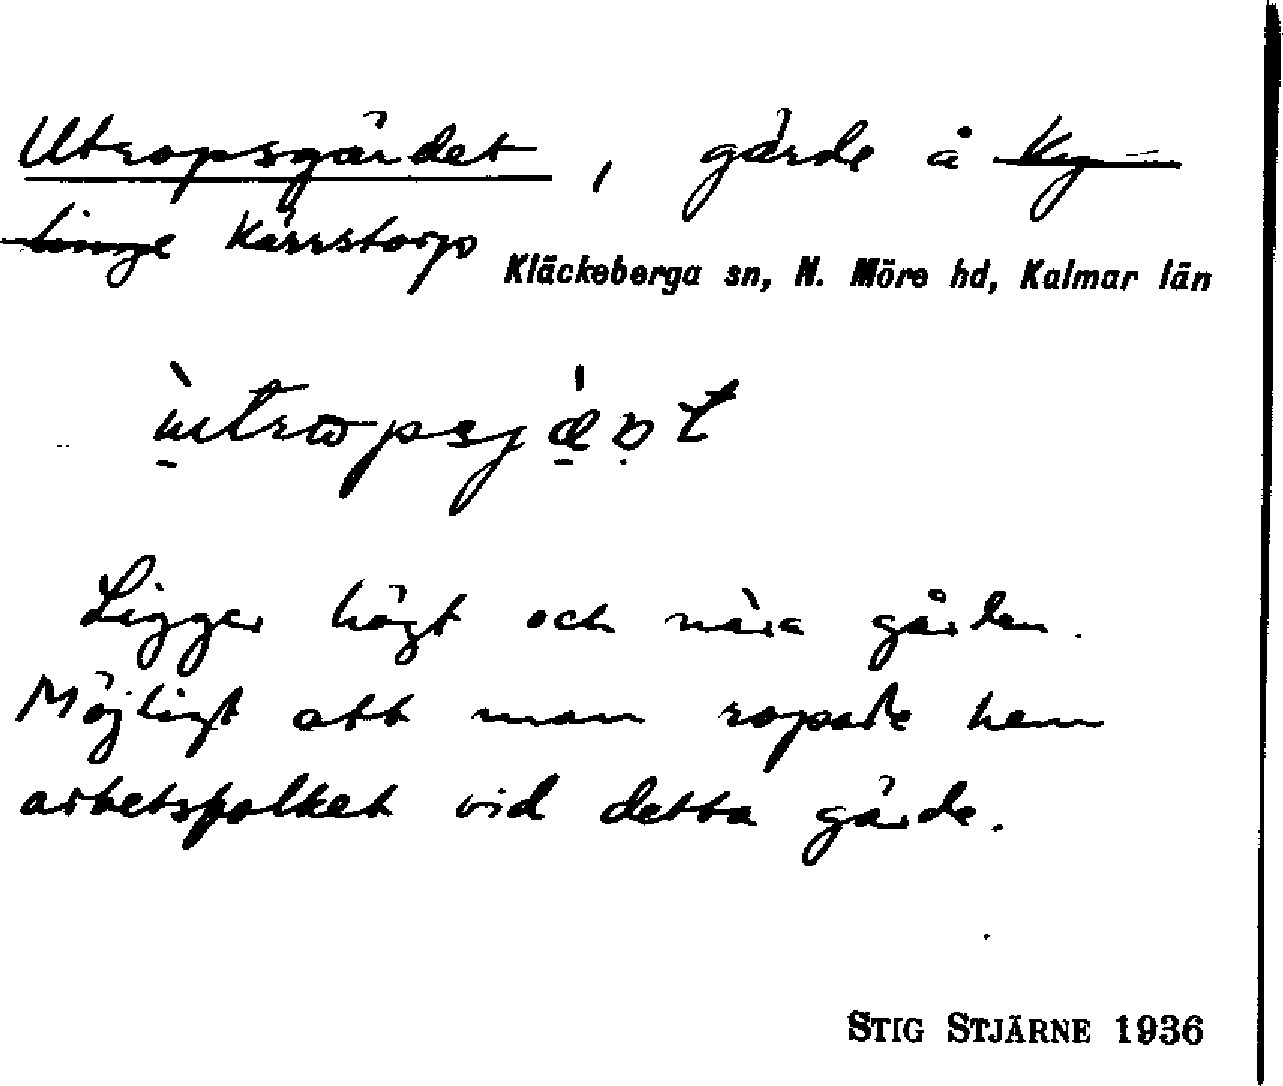 Utropsgärdet, gärde å Ky-
linge Kärrstorp
Kläckeberga sn, N. Möre hd, Kalmar län
Ligger högt och nära gården.
Möjligt att man ropade hem
arbetsfolket vid detta gärde.
STIG STJÄRNE 1936